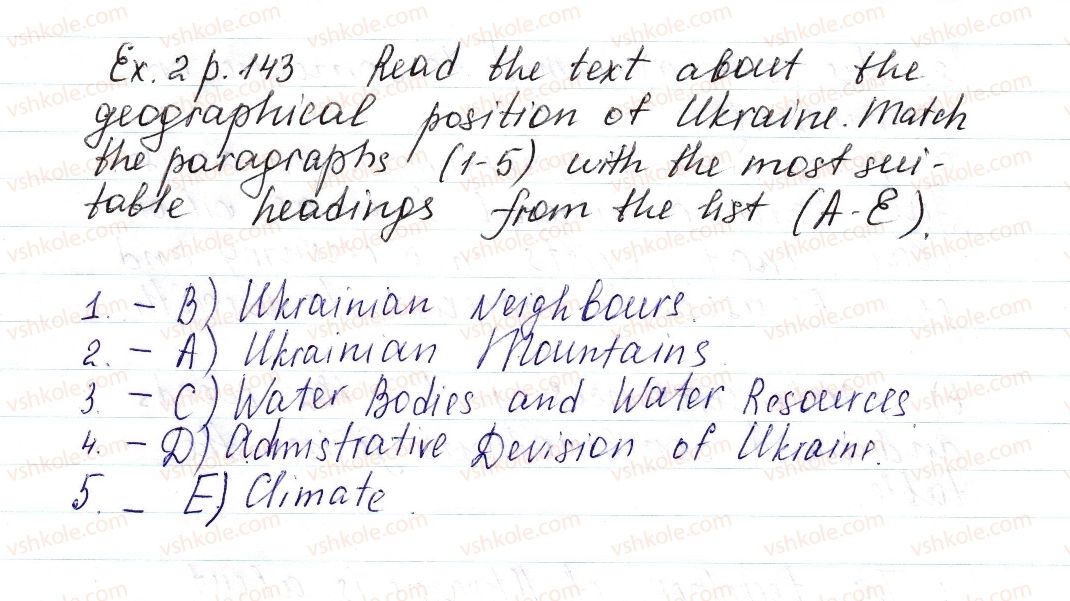 Ex. 2 p. 143 Read the text about the
geographical position of Ukraine. Match
the paragraphs (1-5) with the most sui-
table headings from the list (A-E).
1. - B) Ukrainian Neighbours.
2. - A) Ukrainian Mountains
3. - C) Water Bodies and Water Resources
4. - D) Admistrative Devision of Ukraine.
5. - E) Climate.